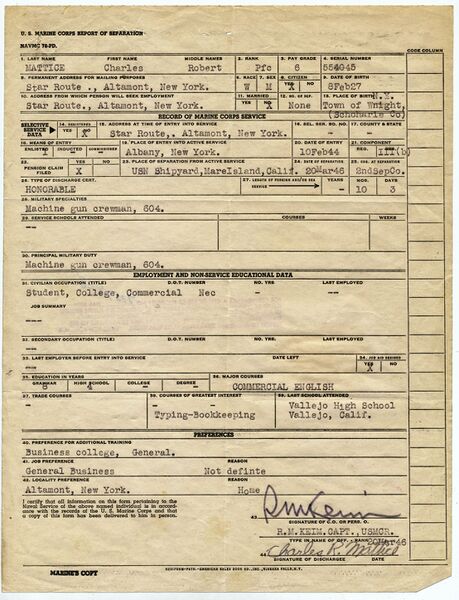 U. S. MARINE CORPS REPORT OF SEPARATION
NAVMC 78-PD.
CODE COLUMN
1. LAST NAME FIRST NAME MIDDLE NAME 2. RANK 3. PAY GRADE 4. SERIAL NUMBER
MATTICE Charles Robert Pfc 6 554045
5. PERMANENT ADDRESS FOR MAILING PURPOSES 6. RACE 7. SEX 8. CITIZEN 9. DATE OF BIRTH
Star Route ., Altamont, New York. W M X No 8Feb27
10. ADDRESS FROM WHICH PERSON WILL SEEK EMPLOYMENT 11. MARRIED 12. NO. OF DEP. 13. PLACE OF BIRTH N.Y.
Star Route., Altamont, New York. X None Town of Wright,
(Schoharie Co)
RECORD OF MARINE CORPS SERVICE
SELECTIVE SERVICE DATA 14. REGISTERED 15. ADDRESS AT TIME OF ENTRY INTO SERVICE 16. SEL. SER. BD. NO. 17. COUNTY & STATE
X Star Route,. Altamont, New York.
18. MEANS OF ENTRY 19. PLACE OF ENTRY INTO ACTIVE SERVICE 20. DATE OF ENTRY 21. COMPONENT
ENLISTED INDUCTED COMMISSIONED Albany, New York. 10Feb44 REG. III(b)
22. PENSION CLAIM FILED YES NO 23. PLACE OF SEPARATION FROM ACTIVE SERVICE 24. DATE OF SEPARATION 25. CO. AT SEPARATION
X USN Shipyard,MareIsland,Calif. 20Mar46 2ndSepCo.
26. TYPE OF DISCHARGE CERT. 27. LENGTH OF FOREIGN AND/OR SEA SERVICE YEARS MOS. DAYS
HONORABLE — 10 3
28. MILITARY SPECIALTIES
Machine gun crewman, 604.
29. SERVICE SCHOOLS ATTENDED COURSES WEEKS
---
30. PRINCIPAL MILITARY DUTY
Machine gun crewman, 604.
EMPLOYMENT AND NON-SERVICE EDUCATIONAL DATA
31. CIVILIAN OCCUPATION (TITLE) D.O.T. NUMBER NO. YRS. LAST EMPLOYED
Student, College, Commercial Nec — —
JOB SUMMARY
---
32. SECONDARY OCCUPATION (TITLE) D.O.T. NUMBER NO. YRS. LAST EMPLOYED
---
33. LAST EMPLOYER BEFORE ENTRY INTO SERVICE DATE LEFT 34. JOB AID DESIRED
--- YES NO
X
35. EDUCATION IN YEARS 36. MAJOR COURSES
GRAMMAR 8 HIGH SCHOOL 4 COLLEGE - DEGREE - COMMERCIAL ENGLISH
37. TRADE COURSES 38. COURSES OF GREATEST INTEREST 39. LAST SCHOOL ATTENDED
- Vallejo High School
Typing-Bookkeeping Vallejo, Calif.
PREFERENCES
40. PREFERENCE FOR ADDITIONAL TRAINING
Business college, General.
41. JOB PREFERENCE REASON
General Business Not definte
42. LOCALITY PREFERENCE REASON
Altamont, New York. Home
I certify that all information on this form pertaining to the
Naval Service of the above named individual is in accordance
with the records of the U. S. Marine Corps and that
a copy of this form has been delivered to him in person.
43. RMKeim
SIGNATURE OF C.O. OR PERS. O.
R.M.KEIM,CAPT.,USMCR.
TYPE IN NAME OF OFF. RANK 20Mar46
44. Charles R. Mattice
SIGNATURE OF DISCHARGEE DATE
MARINE'S COPY